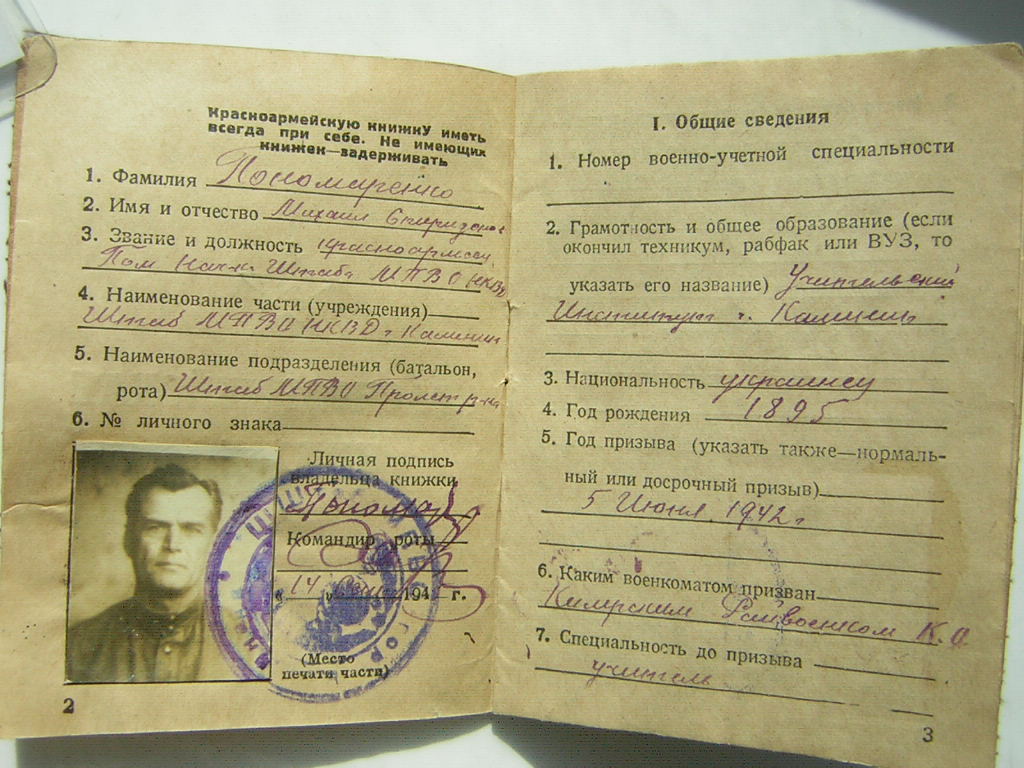 Красноармейскую книжку иметь
всегда при себе. Не имеющих
книжек—задерживать
1. Фамилия Пономаренко
2. Имя и отчество Михаил
3. Звание и должность красноармеец
Пом Нач-ка Штаба МПВО НКВД
4. Наименование части (учреждения)
Штаб МПВО НКВД г Калинин
5. Наименование подразделения (батальон,
рота) Штаб МПВО Пролет р-на
6. № личного знака
Личная подпись
владельца книжки
Командир роты
« 14 » 194 г.
(Место
печати части)
2
I. Общие сведения
1. Номер военно-учетной специальности
2. Грамотность и общее образование (если
окончил техникум, рабфак или ВУЗ, то
указать его название) Учительский
Институт г. Калинин
3. Национальность украинец
4. Год рождения 1895
5. Год призыва (указать также—нормаль-
ный или досрочный призыв)
5 Июня 1942 г
6. Каким военкоматом призван
Кимрским Райвоенком К. О.
7. Специальность до призыва
учитель
3